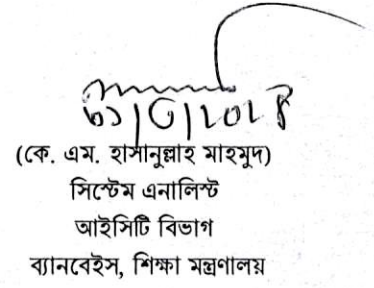 (কে. এম. হাসানুল্লাহ মাহমুদ)
সিস্টেম এনালিস্ট
আইসিটি বিভাগ
ব্যানবেইস, শিক্ষা মন্ত্রণালয়